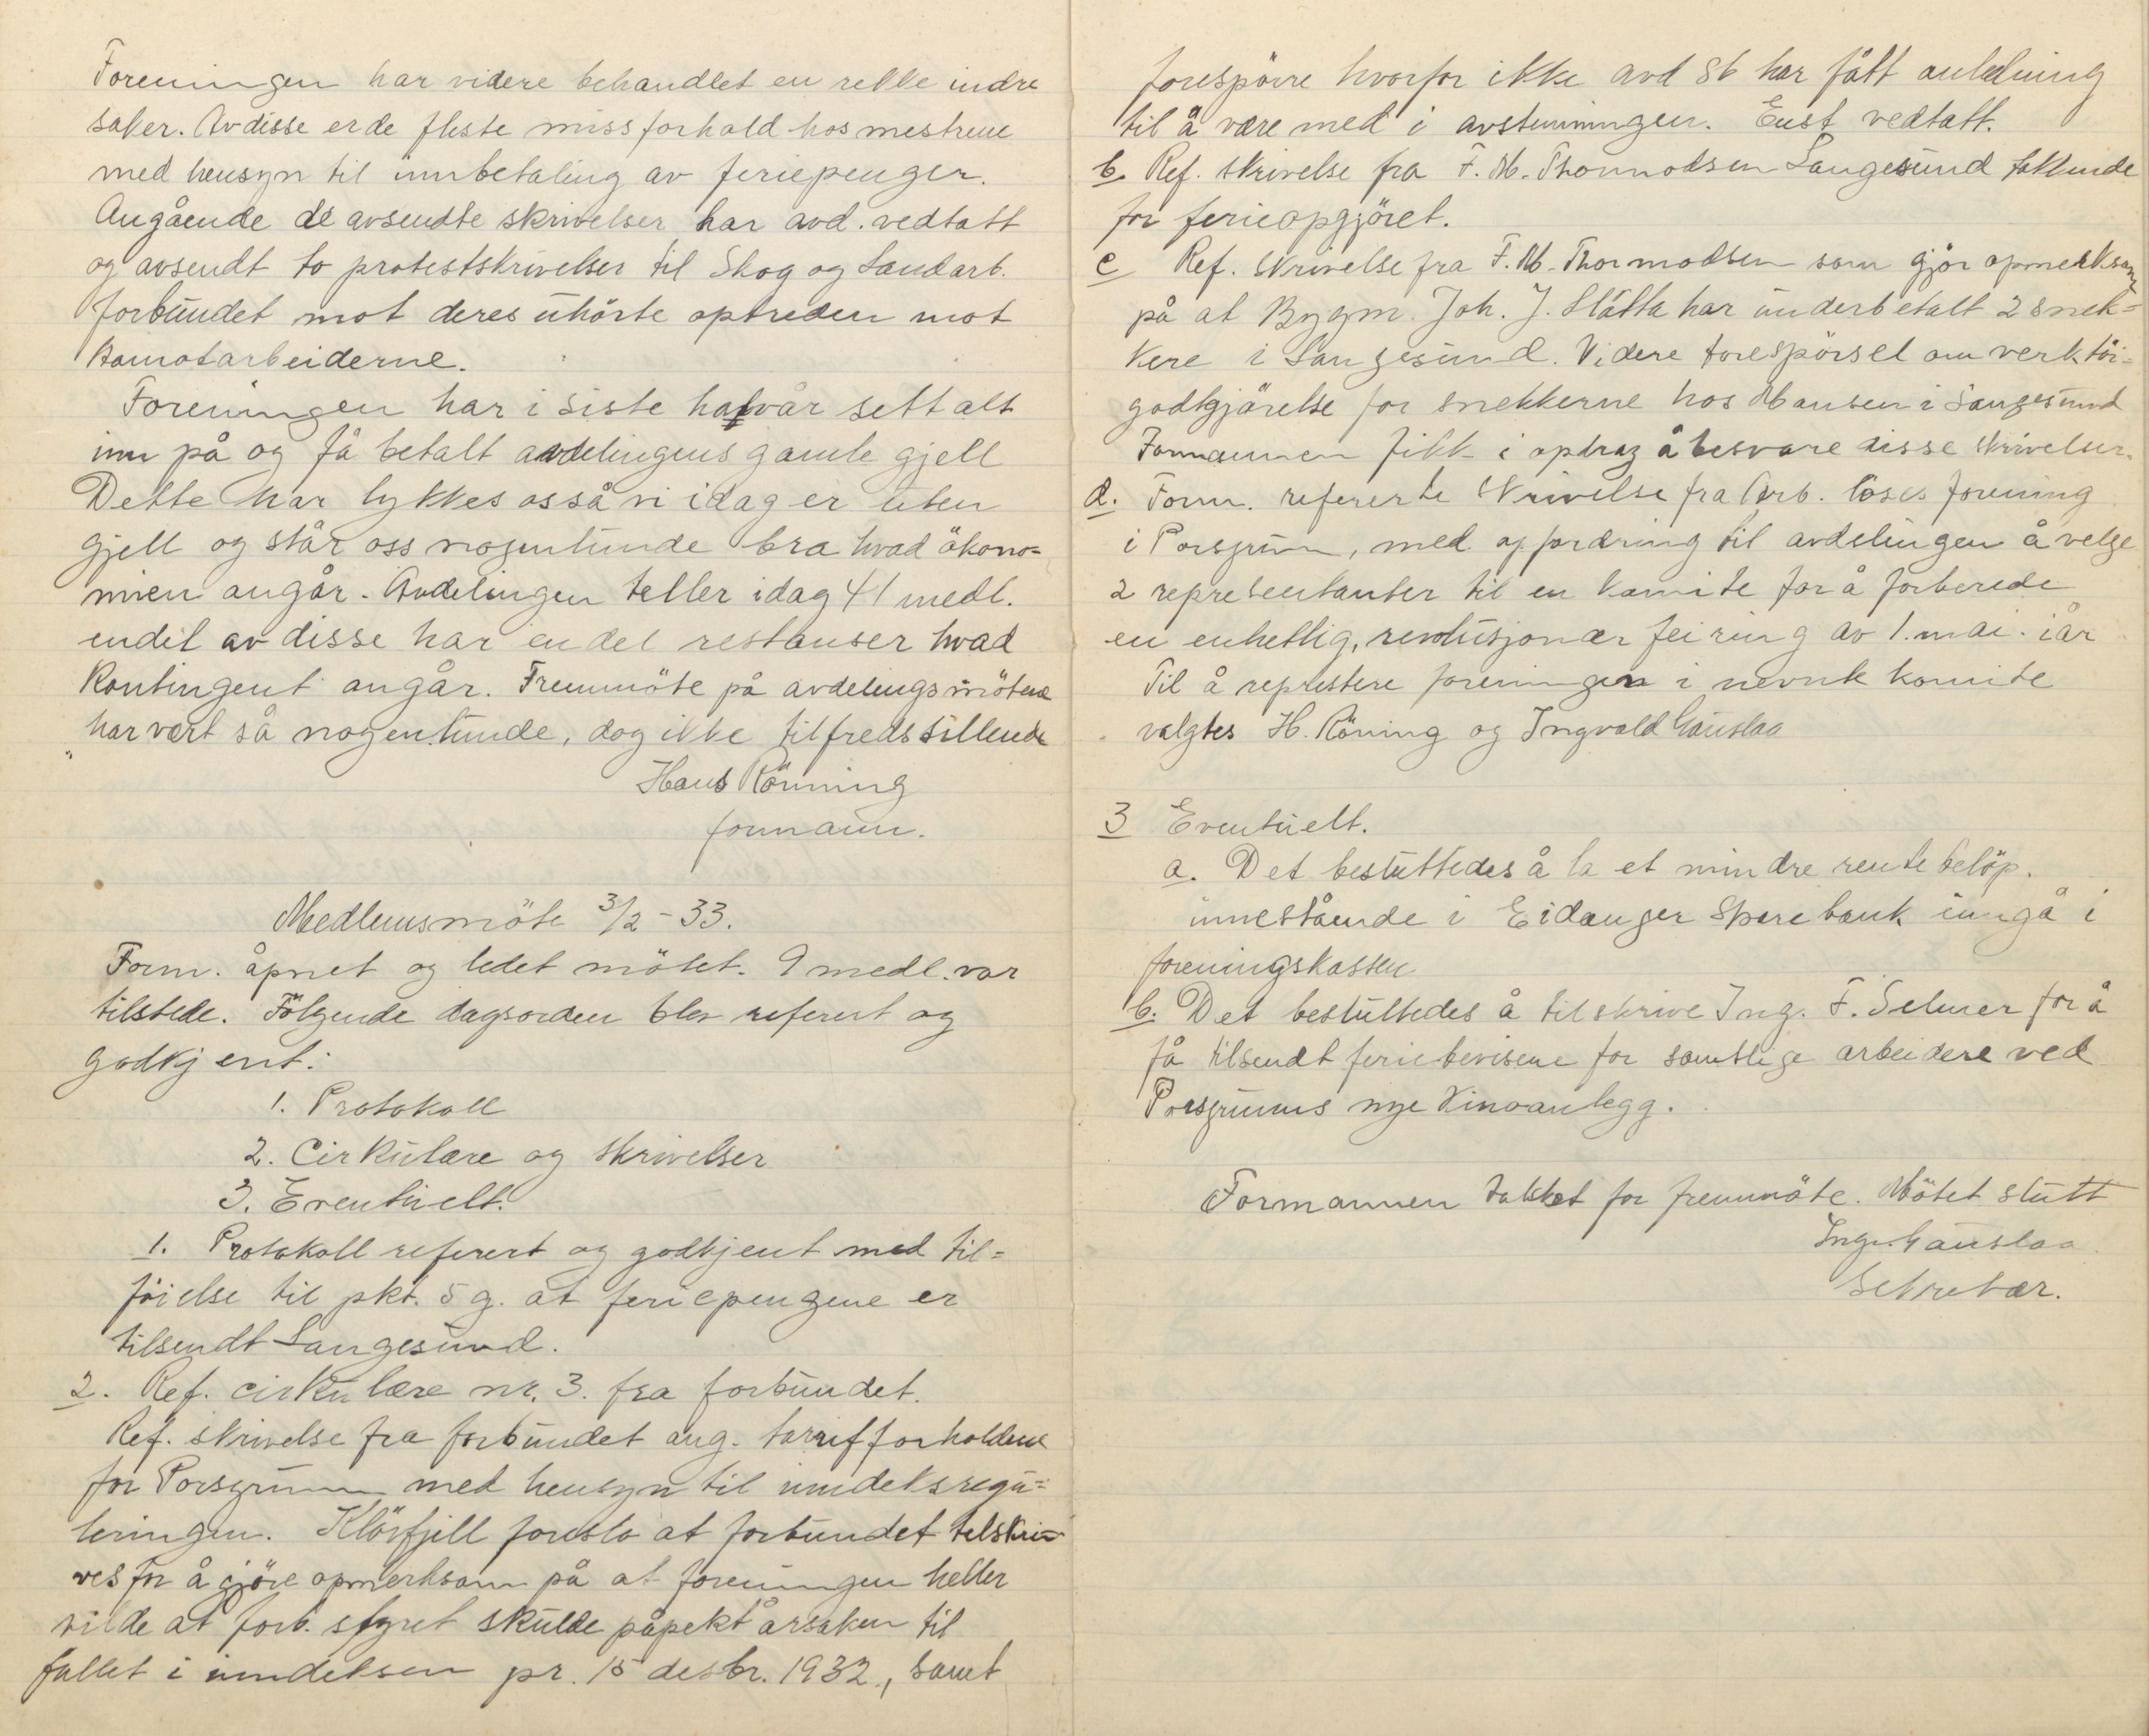 Foreningen har videre behandlet en rekke indre
saker. Av disse er de fleste missforhold hos mestrene
med hensyn til innbetaling av feriepenger.
Angående de avsendte skrivelser har avd. vedtatt
og avsendt to protestskrivelser til Skog og Landarb.
forbundet mot deres uhörte optreden mot
arbeiderne.
Foreningen har i siste halvår sett alt
inn på og få betalt avdelingens gamle gjell
Dette har lykkes os så vi idag er uten
gjell og står oss nogenlunde bra hvad ökono=
mien angår. Avdelingen teller idag 41 medl.
endel av disse har en del restanser hvad
Kontingent angår. Fremmöte på avdelingsmötene
har vært så nogenlunde, dog ikke tilfredsstillende
Hans Rönning
formann.
Medlemsmöte 3/2-33.
Form. åpnet og ledet mötet. 9 medl. var
tilstede. Fölgende dagsorden blev referert og
godkjent:
1. Protokoll
2. Cirkulære og skrivelser
3. Eventuelt.
1. Protokoll referert og godkjent med til=
föielse til pkt. 5 g. at feriepengene er
tilsendt Langesund.
2. Ref. cirkulære nr. 3. fra forbundet.
Ref. skrivelse fra forbundet ang. tarifforholdene
for Porsgrunn med hensyn til inndeksregu=
leringen. Klövfjell foreslo at forbundet tilskri=
ves for å gjöre opmerksom på at foreningen heller
vilde at forb. styret skulde påpekt årsaken til
fallet i inndeksen pr. 15 desbr. 1932., samt
forespörre hvorfor ikke avd 86 har fått anledning
til å være med i avstemningen. Enst vedtatt.
b. Ref. skrivelse fra F. M. Thormodsen Langesund takkende
for ferieopgjöret.
c Ref. Skrivelse fra F. M. Thormodsen som gjör opmerksom
på at Bygm. Joh. J. Slåtta har underbetalt 2 snek=
kere i Langesund. Videre forespörsel om verktöi=
godtgjörelse for snekkerne hos Hansen i Langesund
Formannen fikk i opdrag å besvare disse skrivelser.
d. Form. refererte Skrivelse fra Arb. löses forening
i Porsgrunn, med opfordring til avdelingen å velge
2 representanter til en komite for å forberede
en enhetlig, revolusjonær feiring av 1. mai. i år
Til å represtere foreningen i nevnte komite
valgtes H. Röning og Ingvald Gauslaa
3 Eventuelt.
a. Det besluttedes å la et mindre rentebelöp.
innestående i Eidanger Sparebank inngå i
foreningskassen
b. Det besluttedes å tilskrive Ing. F. Selmer for å
få tilsendt feriebevisene for samtlige arbeidere ved
Porsgrunns nye Kinoanlegg.
Formannen takket for fremmöte. Mötet slutt
Ingv. Gauslaa.
Sekretær.